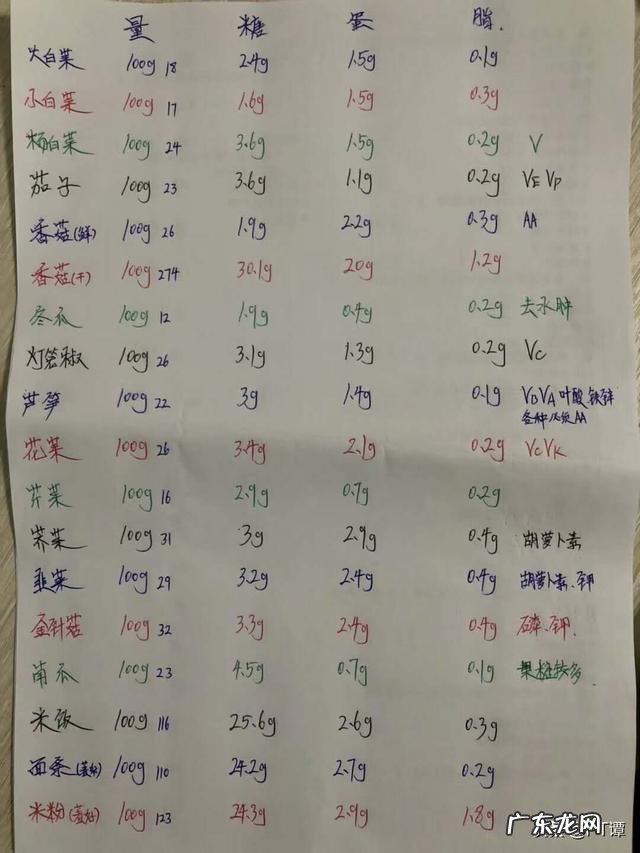 量 糖 蛋 脂.
大白菜 100g 18 2.4g 1.5g 0.1g
小白菜 100g 17 1.6g 1.5g 0.3g
杨白菜 100g 24 3.6g 1.5g 0.2g V
茄子 100g 23 3.6g 1.1g 0.2g VE VP
香菇(鲜) 100g 26 1.9g 2.2g 0.3g AA
香菇(干) 100g 274 30.1g 20g 1.2g
冬瓜 100g 12 1.9g 0.4g 0.2g 去水肿
灯笼椒 100g 26 3.1g 1.3g 0.2g Vc
芦笋 100g 22 3g 1.4g 0.1g VB VA 叶酸 铁 锌
各种必须AA
花菜 100g 26 3.4g 2.1g 0.2g Vc VK
芹菜 100g 16 2.9g 0.7g 0.2g
荠菜 100g 31 3g 2.9g 0.4g 胡萝卜素
韭菜 100g 29 3.2g 2.4g 0.4g 胡萝卜素、钾
金针菇 100g 32 3.3g 2.4g 0.4g 磷、钾.
南瓜 100g 23 4.5g 0.7g 0.1g 果糖较多.
米饭 100g 116 25.6g 2.6g 0.3g
面条(煮好) 100g 110 24.2g 2.7g 0.2g
米粉(煮好) 100g 123 24.3g 2.9g 1.8g
广东龙网